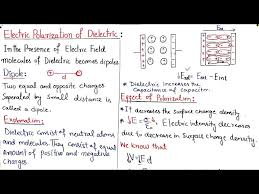 Electric Polarization of Dielectric:
In the Presence of Electric Field
molecules of Dielectric becomes dipoles.
Dipole:
d
Two equal and opposite charges
Separated by Small distance is
called a dipole.
Explanation:
Dielectric consist of neutral atoms
and molecules. They consist of equal
amount of positive and negative
charges.
* Dielectric increases the
Capacitance of capacitor.
Effect of Polarization:
* It decreases the Surface charge density
* Electric intensity decreases
due to decrease in Surface charge density.
We know that
V = Ed